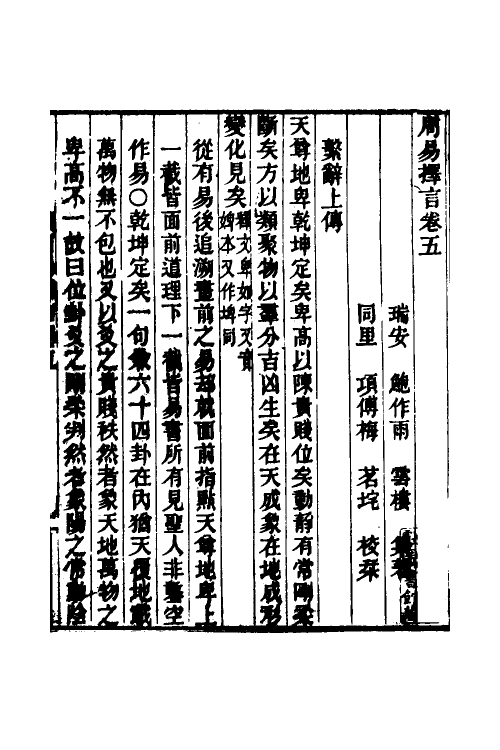 周易擇言卷五
瑞安 鮑作雨 雲樓
同里 項傅梅 茗垞 校栞
繫辭上傳
天尊地卑乾坤定矣卑高以陳貴賤位矣動靜有常剛柔
斷矣方以類聚物以羣分吉凶生矣在天成象在地成形
變化見矣釋文卑如字又音婢本又作埤同
從有易後追溯畫前之易却就面前指點天尊地卑上
一截皆面前道理下一截皆易書所有見聖人非鑿空
作易○乾坤定矣一句六十四卦在內猶天覆地載
萬物無不包也爻以爻之貴賤秩然者象天地萬物之
卑高不一故曰位卦爻之剛柔判然者象陽之常動陰